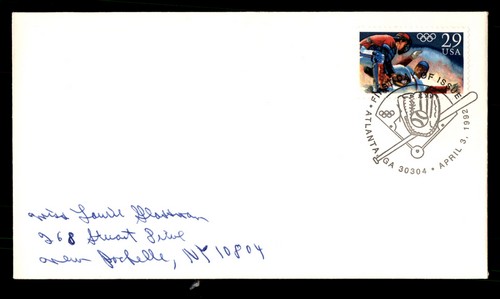 29
USA
FIRST DAY OF ISSUE
ATLANTA GA 30304 • APRIL 3, 1992
Miss Laurie Glassman
268 Stuart Drive
New Rochelle, NY 10804